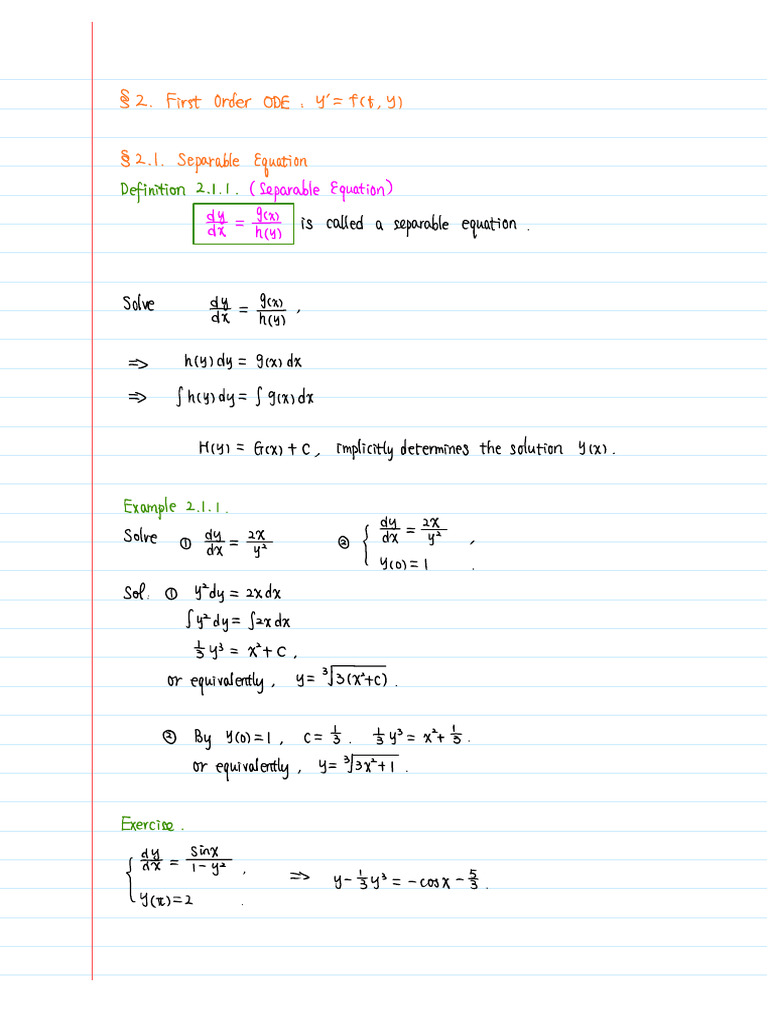 §2. First Order ODE : y' = f(t, y)
§2.1. Separable Equation
Definition 2.1.1. (Separable Equation)
dy/dx = g(x)/h(y) is called a separable equation.
Solve dy/dx = g(x)/h(y),
⇒ h(y)dy = g(x)dx
⇒ ∫h(y)dy = ∫g(x)dx
H(y) = G(x) + C, implicitly determines the solution y(x).
Example 2.1.1.
Solve ① dy/dx = 2x/y² ② { dy/dx = 2x/y² ,
y(0) = 1 .
Sol: ① y²dy = 2xdx
∫y²dy = ∫2xdx
1/3 y³ = x² + C,
or equivalently, y = ³√(3(x²+C)).
② By y(0)=1, C = 1/3. 1/3 y³ = x² + 1/3.
or equivalently, y = ³√(3x²+1).
Exercise.
{ dy/dx = sinx/(1-y²) , ⇒ y - 1/3 y³ = -cosx - 5/3.
y(π) = 2 .